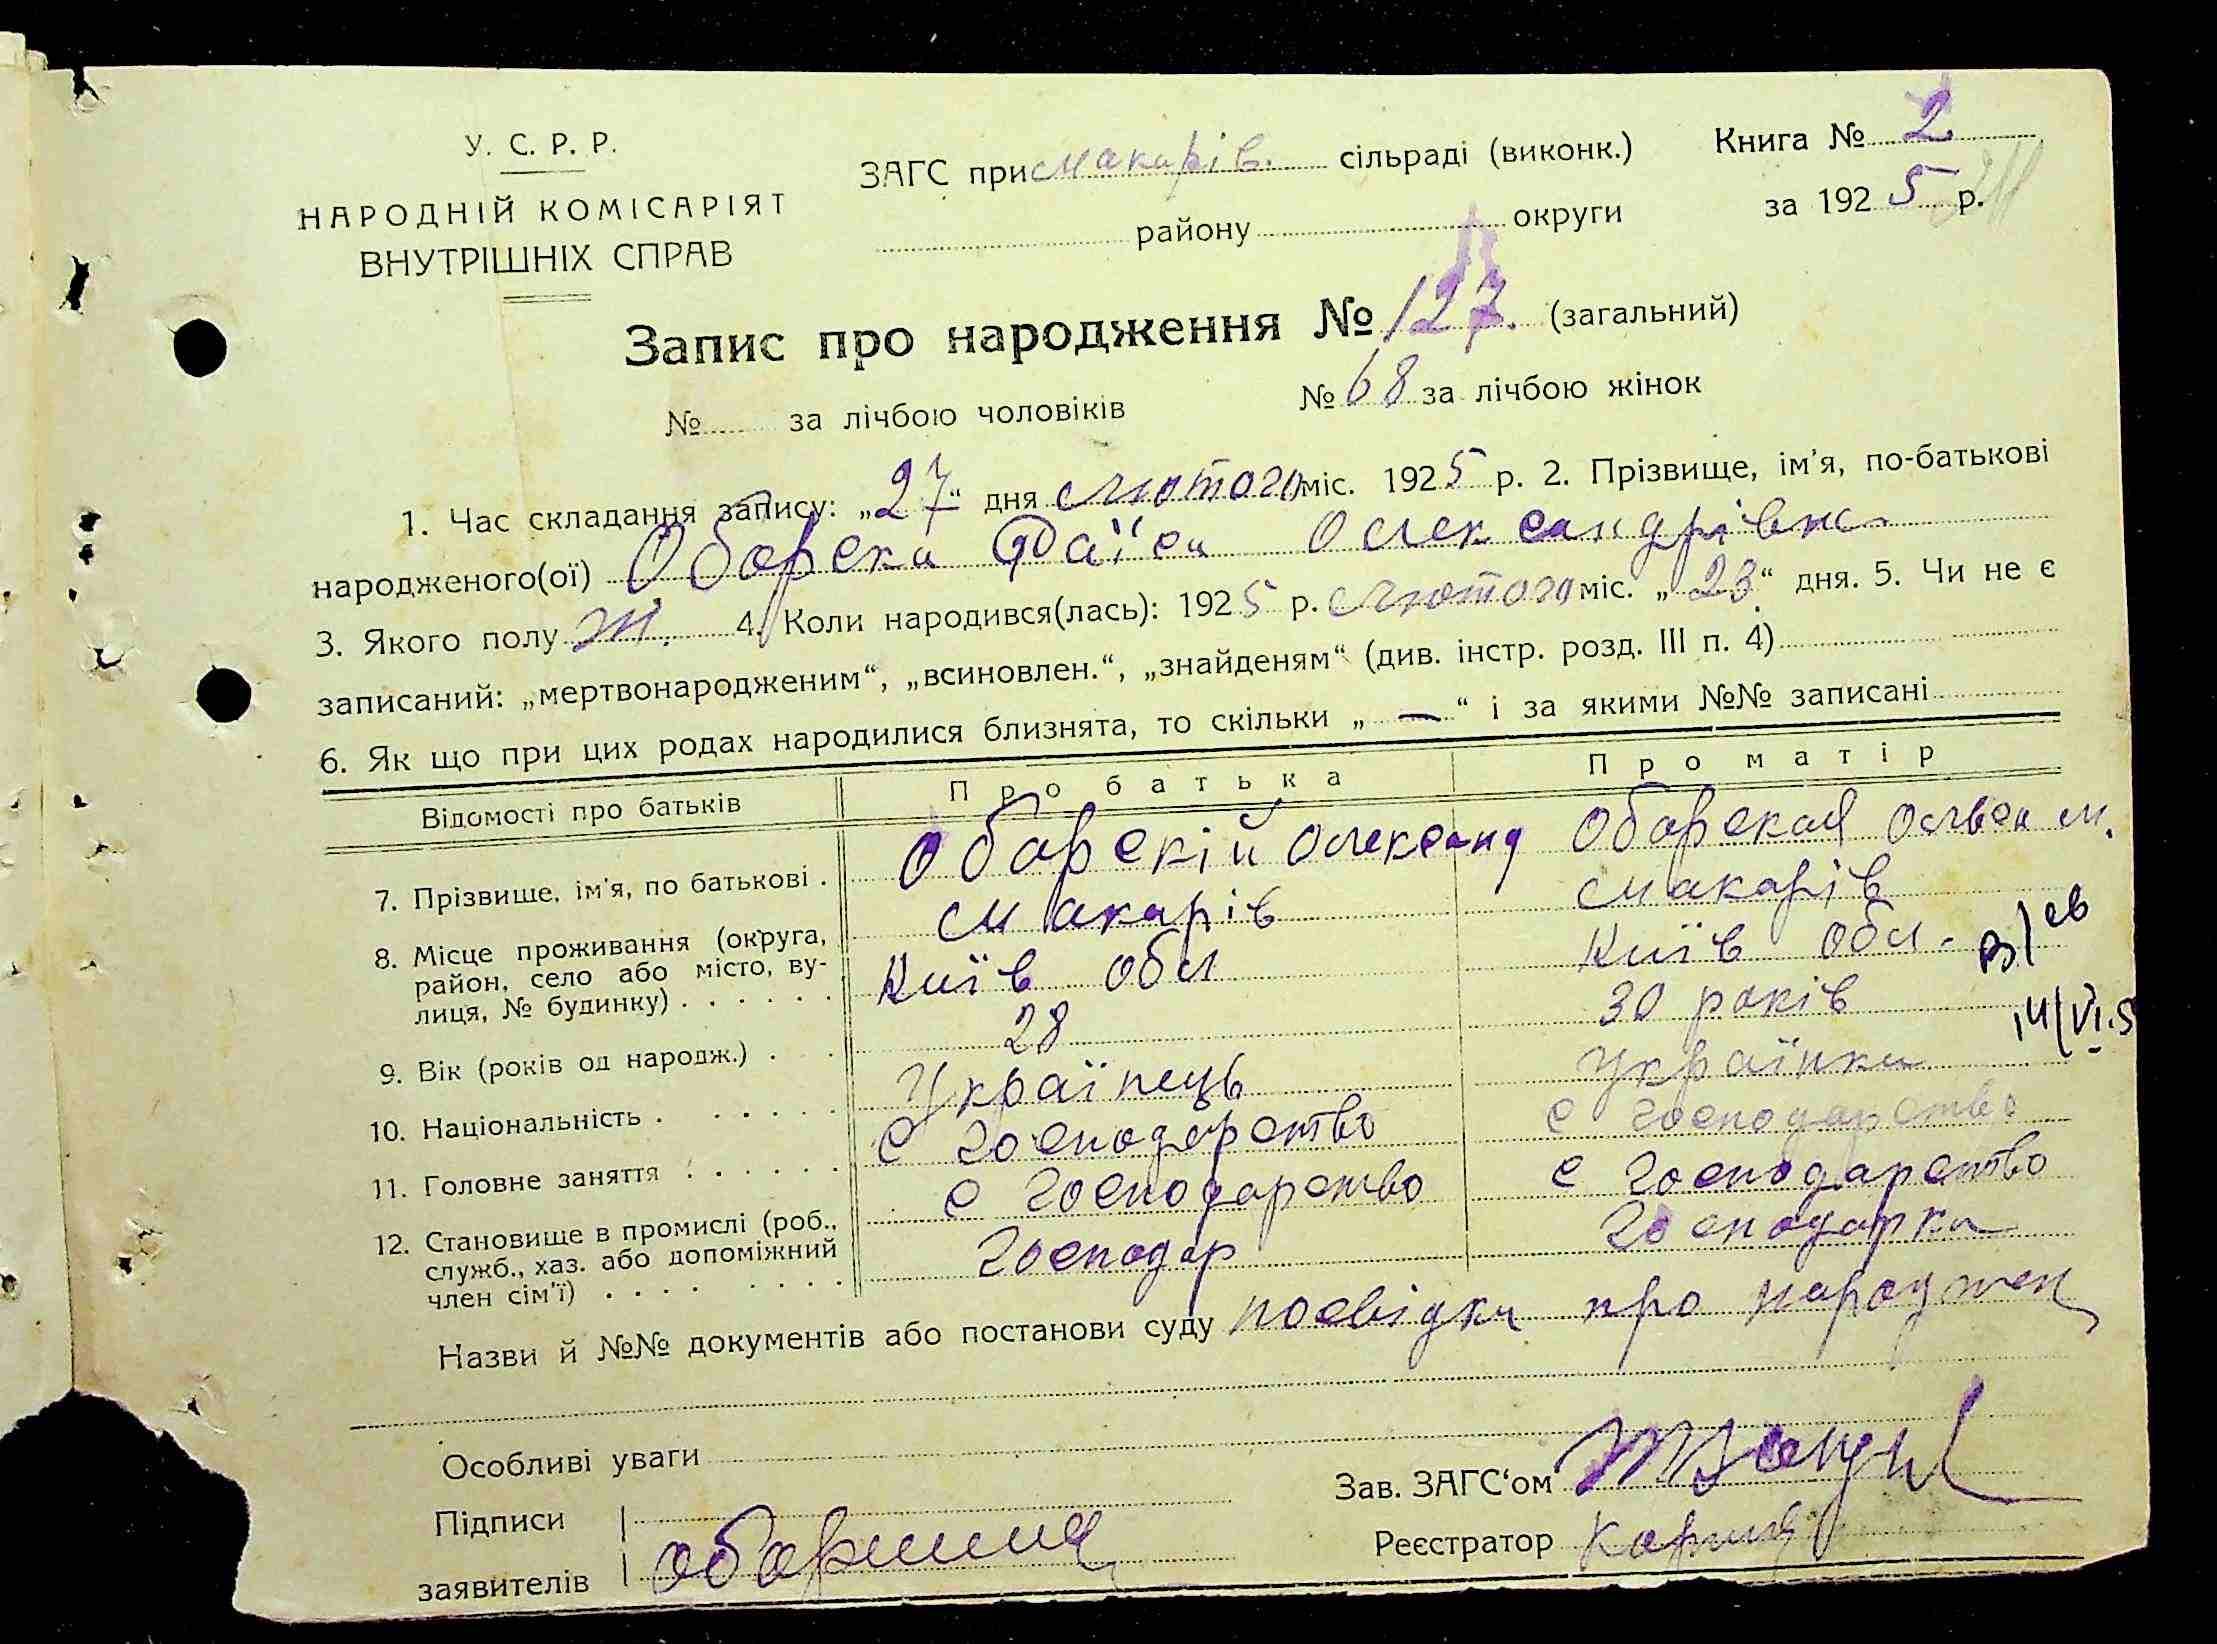 У. С. Р. Р.
НАРОДНІЙ КОМІСАРІЯТ
ВНУТРІШНІХ СПРАВ
ЗАГС при Макарів. сільраді (виконк.)
району округи
Книга № 2
за 1925 р.
Запис про народження № 127. (загальний)
№ за лічбою чоловіків № 68 за лічбою жінок
1. Час складання запису: „27“ дня лютого міс. 1925 р. 2. Прізвище, ім'я, по-батькові
народженого(ої) Оборска Раїса Олександрівна
3. Якого полу ж. 4. Коли народився(лась): 1925 р. лютого міс. „23.“ дня. 5. Чи не є
записаний: „мертвонародженим“, „всиновлен.“, „знайденям“ (див. інстр. розд. III п. 4)
6. Як що при цих родах народилися близнята, то скільки „—“ і за якими №№ записані
Відомості про батьків Про батька Про матір
7. Прізвище, ім'я, по батькові . Оборскій Олександ Оборская М.
8. Місце проживання (округа, Макарів Макарів
район, село або місто, ву- Київ обл Київ обл.
лиця, № будинку) . . . . . .
9. Вік (років од народж.) . . 28 30 років
10. Національність . . . . . . Українець Українка
11. Головне заняття . . . . . . С господарство С господарство
12. Становище в промислі (роб., С господарство С господарство
служб., хаз. або допоміжний Господар Господарка
член сім'ї) . . . . . . . .
Назви й №№ документів або постанови суду посвідка про народжен
Особливі уваги
Зав. ЗАГС‘ом
Підписи
Реєстратор
заявителів